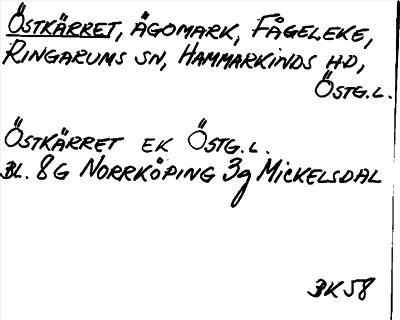 ÖSTKÄRRET, ÄGOMARK, FÅGELEKE,
RINGARUMS SN, HAMMARKINDS HD,
ÖSTG.L.
ÖSTKÄRRET EK ÖSTG.L.
BL. 8G NORRKÖPING 3g MICKELSDAL
BK58